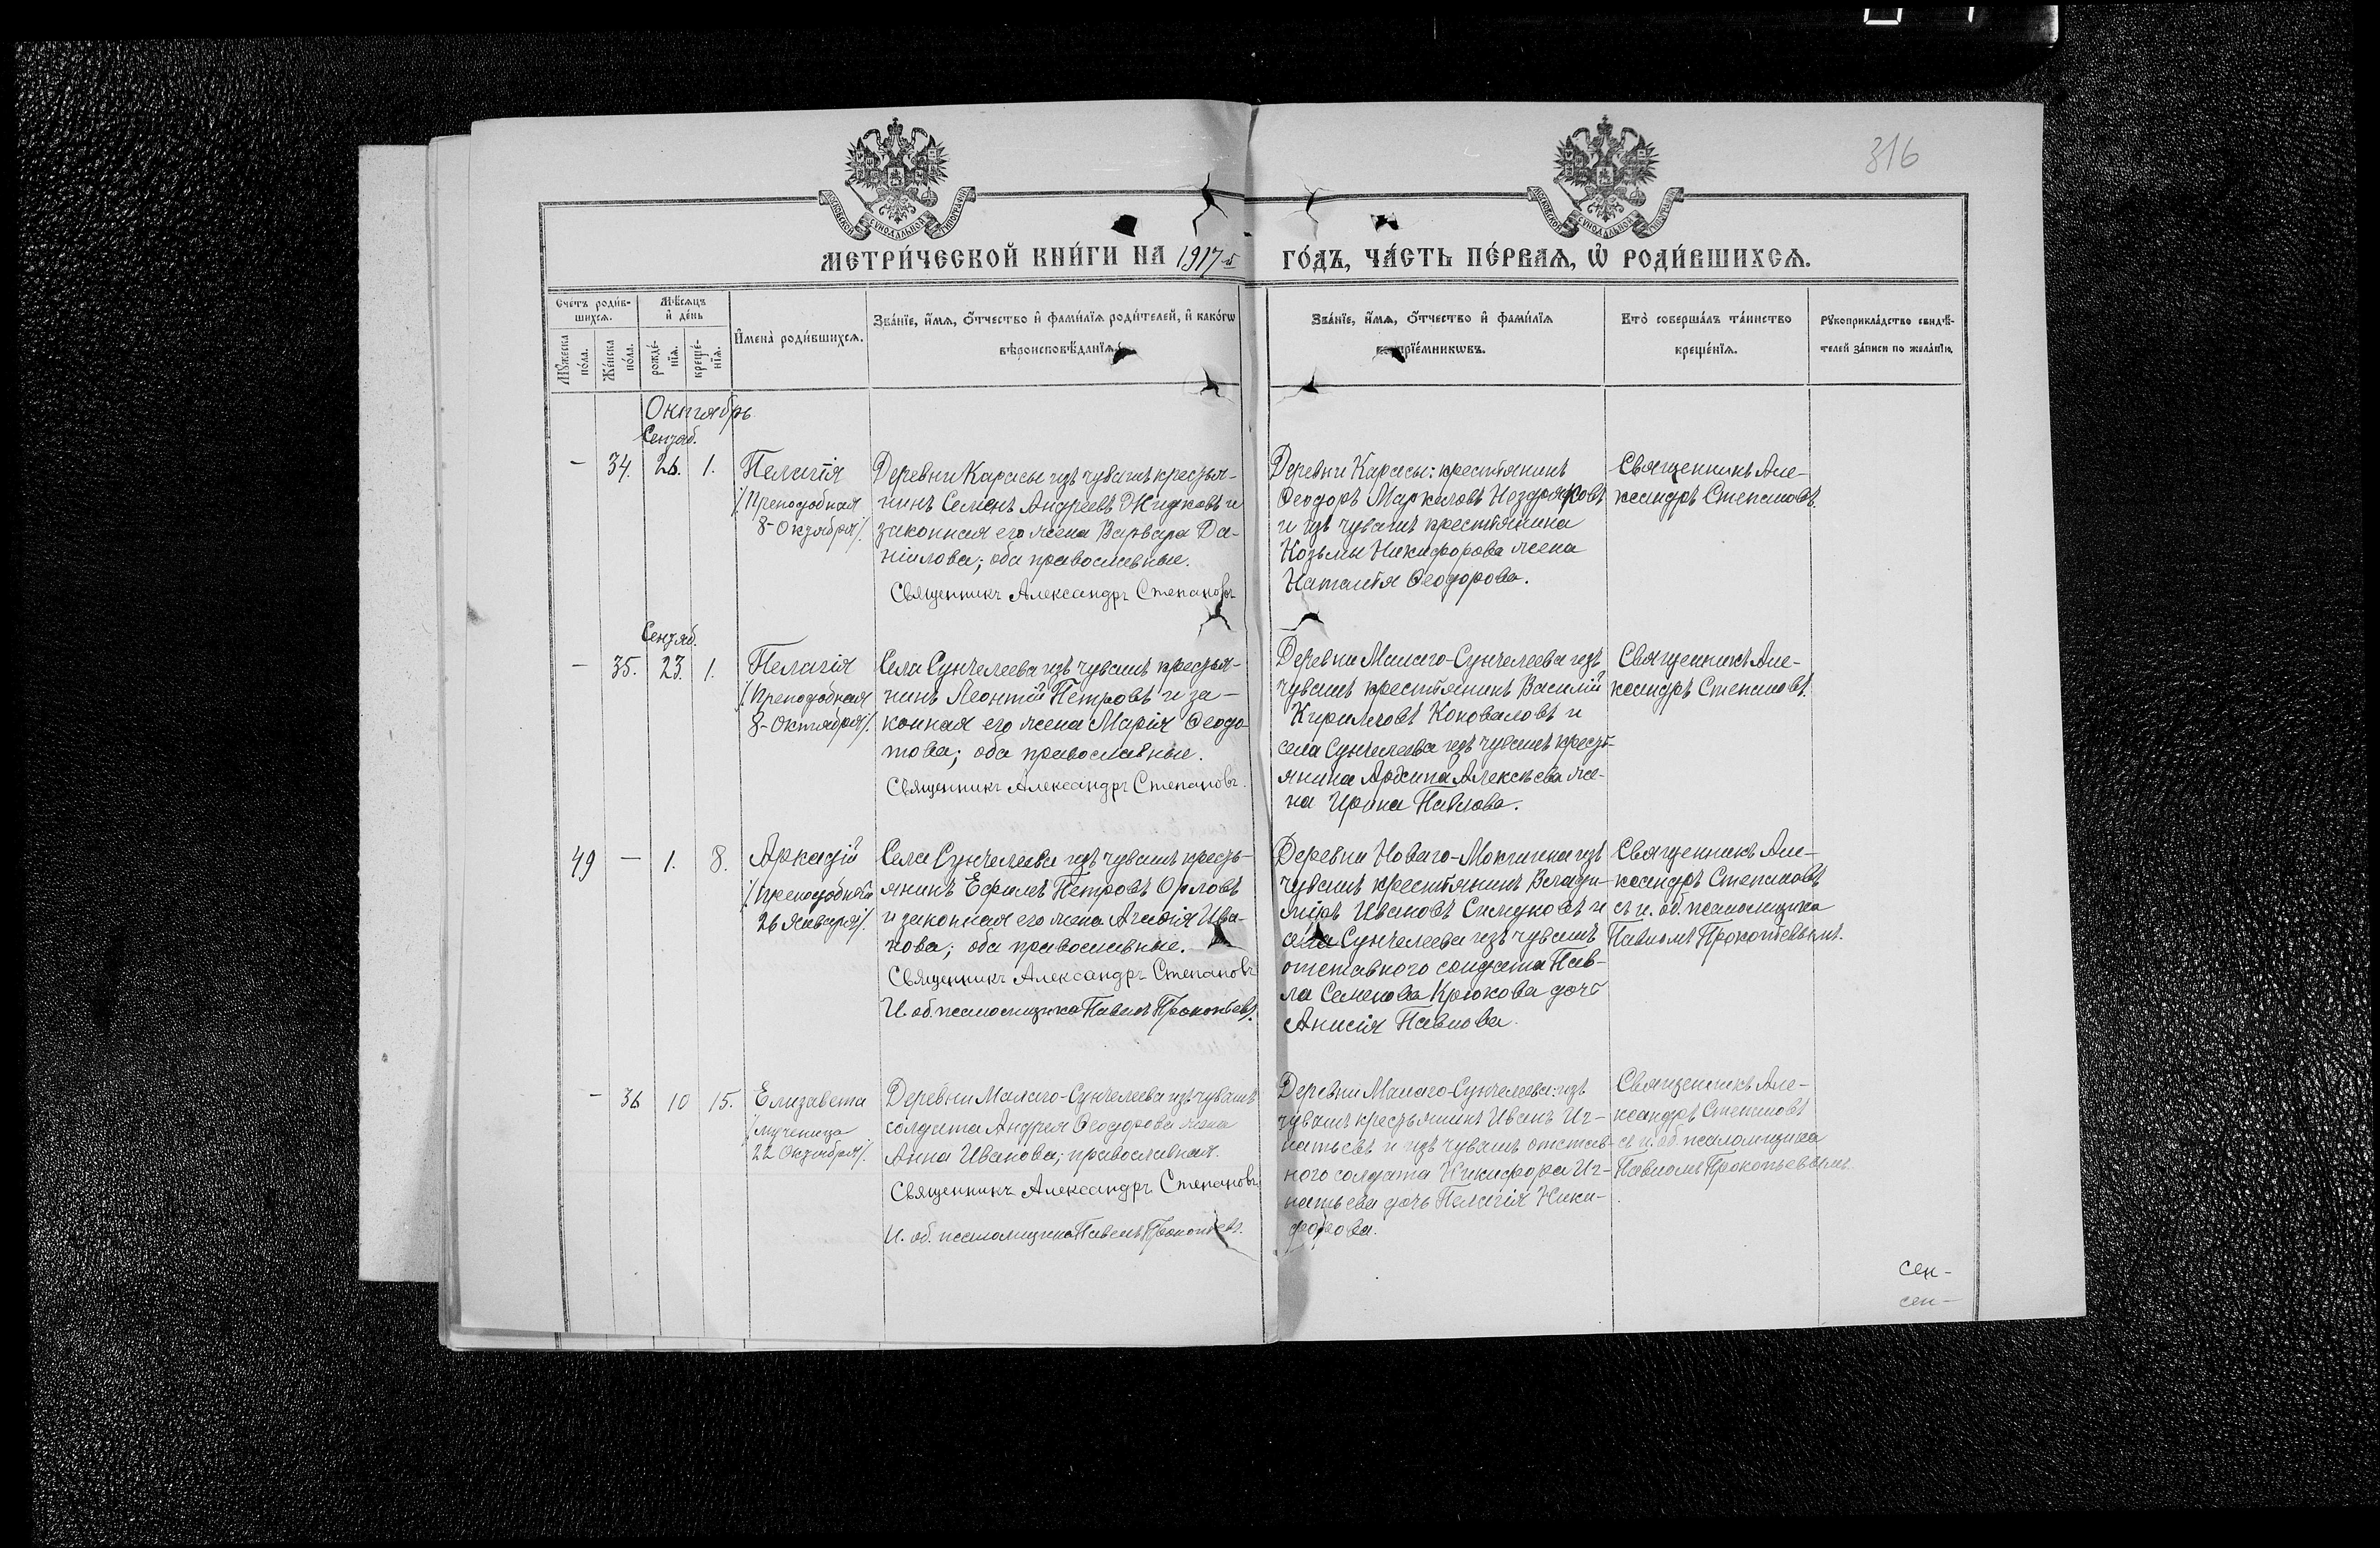 316
МОСКОВСКОЙ СѴНОДАЛЬНОЙ ТИПОГРАФІИ
МОСКОВСКОЙ СѴНОДАЛЬНОЙ ТИПОГРАФІИ
МЕТРИ́ЧЕСКОЙ КНИ́ГИ НА 1917-й ГО́ДЪ, ЧА́СТЬ ПЕ́РВАЯ, Ѡ РОДИ́ВШИХСЯ.
Счетъ роди́в-
шихся.
Мѣ́сяцъ
и҆ де́нь
Му́жеска
по́ла.
Же́нска
по́ла.
рожде́-
нїя.
креще́-
нїя.
И҆мена̀ роди́вшихся.
Зва́нїе, и҆́мя, ѻ҆́тчество и҆ фами́лїя роди́телей, и҆ како́гѡ
вѣроисповѣ́данїя.
Зва́нїе, и҆́мя, ѻ҆́тчество и҆ фами́лїя
воспрїе́мникѡвъ.
Кто̀ соверша́лъ та́инство
креще́нїя.
Рꙋкоприкла́дство свидѣ́-
телей за́писи по жела́нїю.
Октябрь
Сентяб.
— 34. 26. 1.
Пелагія
/Преподобная
8 Октября/.
Деревни Карасы изъ чувашъ крестья-
нинъ Семенъ Андреевъ Жидковъ и
законная его жена Варвара Да-
нилова; оба православные.
Священникъ Александръ Степановъ
Деревни Карасы: крестьянинъ
Ѳеодоръ Маркеловъ Ноздряковъ
и изъ чувашъ крестьянина
Козьмы Никифорова жена
Наталія Ѳеодорова.
Священникъ Але-
ксандръ Степановъ.
Сентяб.
— 35. 23. 1.
Пелагія
/Преподобная
8 Октября/.
Села Сунчелеева изъ чувашъ крестья-
нинъ Леонтій Петровъ и за-
конная его жена Марія Ѳеодо-
това; оба православные.
Священникъ Александръ Степановъ.
Деревни Малаго-Сунчелеева изъ
чувашъ крестьянинъ Василій
Кирилловъ Коноваловъ и
села Сунчелеева изъ чувашъ кресть-
янина Архипа Алексѣева же-
на Ирина Павлова.
Священникъ Але-
ксандръ Степановъ.
49 — 1. 8.
Аркадій
/Преподобный
26 Января/.
Села Сунчелеева изъ чувашъ кресть-
янинъ Ефимъ Петровъ Орловъ
и законная его жена Агафія Ива-
нова; оба православные.
Священникъ Александръ Степановъ
И. об. псаломщика Павелъ Прокопьевъ.
Деревни Новаго-Мокшина изъ
чувашъ крестьянинъ Влади-
міръ Ивановъ Симуковъ и
села Сунчелеева изъ чувашъ
отставного солдата Пав-
ла Семенова Крюкова дочь
Анисія Павлова.
Священникъ Але-
ксандръ Степановъ
съ и. об. псаломщика
Павломъ Прокопьевымъ.
— 36 10 15.
Елизавета
/мученица
22 Октября/.
Деревни Малаго-Сунчелеева изъ чувашъ
солдата Андрея Ѳеодорова жена
Анна Иванова; православная.
Священникъ Александръ Степановъ
И. об. псаломщика Павелъ Прокопьевъ.
Деревни Малаго-Сунчелеева: изъ
чувашъ крестьянинъ Иванъ Иг-
натьевъ и изъ чувашъ отстав-
ного солдата Никифора Иг-
натьева дочь Пелагія Ники-
форова.
Священникъ Але-
ксандръ Степановъ
съ и. об. псаломщика
Павломъ Прокопьевымъ.
сен-
сен-